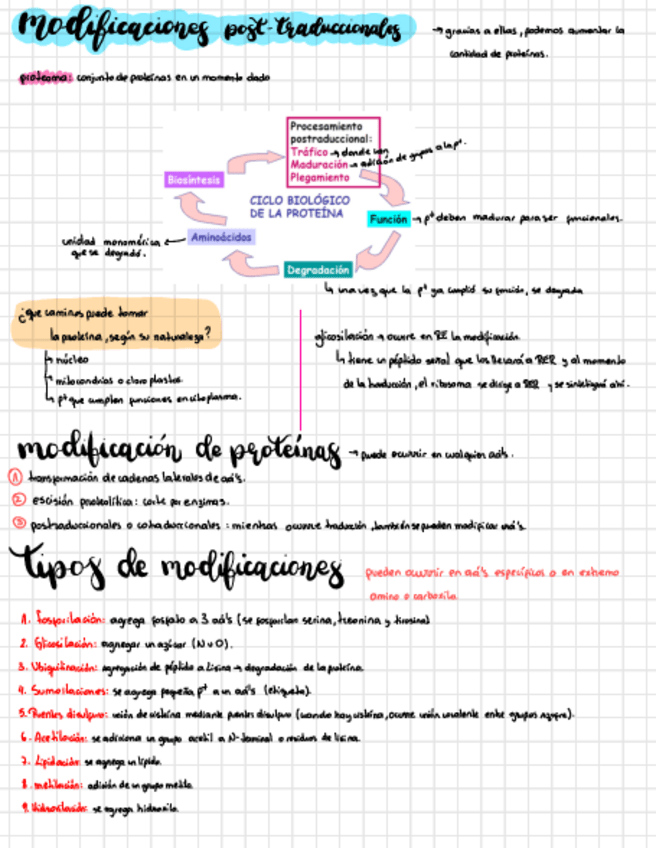 modificaciones post-traduccionales → gracias a ellas, podemos aumentar la
cantidad de proteínas.
proteoma: conjunto de proteínas en un momento dado
Procesamiento
postraduccional:
Tráfico → donde van
Maduración → adición de grupos a la pº.
Plegamiento
Biosíntesis
CICLO BIOLÓGICO
DE LA PROTEÍNA
Función → pº deben madurar para ser funcionales.
Aminoácidos
unidad monomérica
que se degradó.
Degradación
↳ una vez que la pº ya cumplió su función, se degrada
¿que caminos puede tomar
la proteína, según su naturaleza?
núcleo
mitocondrias o cloroplastos.
pº que cumplen funciones en citoplasma.
glicosilación → ocurre en RE la modificación.
↳ tiene un péptido señal que los llevará a RER y al momento
de la traducción, el ribosoma se dirige a RER y se sintetizará ahí.
modificación de proteínas → puede ocurrir en cualquier aá's.
① transformación de cadenas laterales de aá's.
② escisión proteolítica: corte por enzimas.
③ postraduccionales o cotraduccionales: mientras ocurre traducción, también se pueden modificar aá's.
tipos de modificaciones pueden ocurrir en aá's específicos o en extremo
amino o carboxilo.
1. Fosforilación: agrega fosfato a 3 aá's (se fosforilan serina, treonina y tirosina)
2. Glicosilación: agregar un azúcar (N u O).
3. Ubiquitinación: agregación de péptido a Lisina → degradación de la proteína.
4. Sumoilaciones: se agrega pequeña pº a un aá's (etiqueta).
5. Puentes disulfuro: unión de cisteína mediante puentes disulfuro (cuando hay cisteína, ocurre unión covalente entre grupos azufre).
6. Acetilación: se adiciona un grupo acetil a N-terminal o residuos de lisina.
7. Lipidación: se agrega un lípido.
8. metilación: adición de un grupo metilo.
9. Hidroxilación: se agrega hidroxilo.